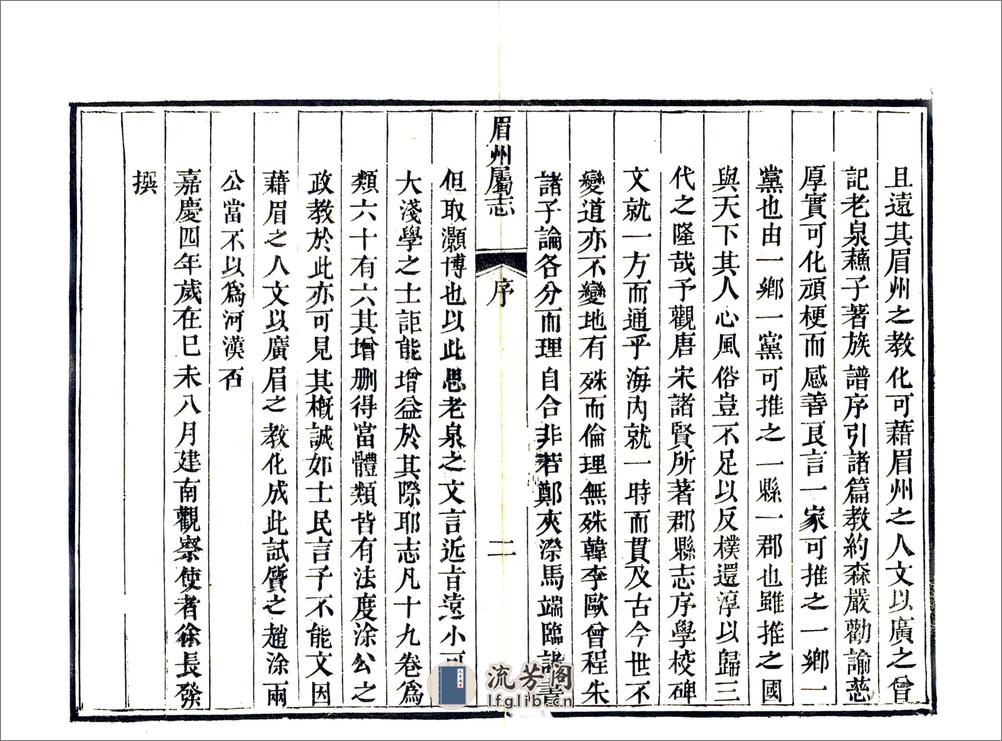 且遠其眉州之教化可藉眉州之人文以廣之曾
記老泉蘇子著族譜序引諸篇教約森嚴勸諭慈
厚實可化頑梗而感善良言一家可推之一鄉一
黨也由一鄉一黨可推之一縣一郡也雖推之國
與天下其人心風俗豈不足以反樸還淳以歸三
代之隆哉予觀唐宋諸賢所著郡縣志序學校碑
文就一方而通乎海內就一時而貫及古今世不
變道亦不變地有殊而倫理無殊韓李歐曾程朱
諸子論各分而理自合非若鄭夾漈馬端臨諸書
眉州屬志 序 二
但取灝博也以此思老泉之文言近旨遠小可
大淺學之士詎能增益於其際耶志凡十九卷為
類六十有六其增刪得當體類皆有法度涂公之
政教於此亦可見其概誠如士民言予不能文因
藉眉之人文以廣眉之教化成此試質之趙涂兩
公當不以為河漢否
嘉慶四年歲在巳未八月建南觀察使者徐長發
撰
流芳閣
lfglib.cn